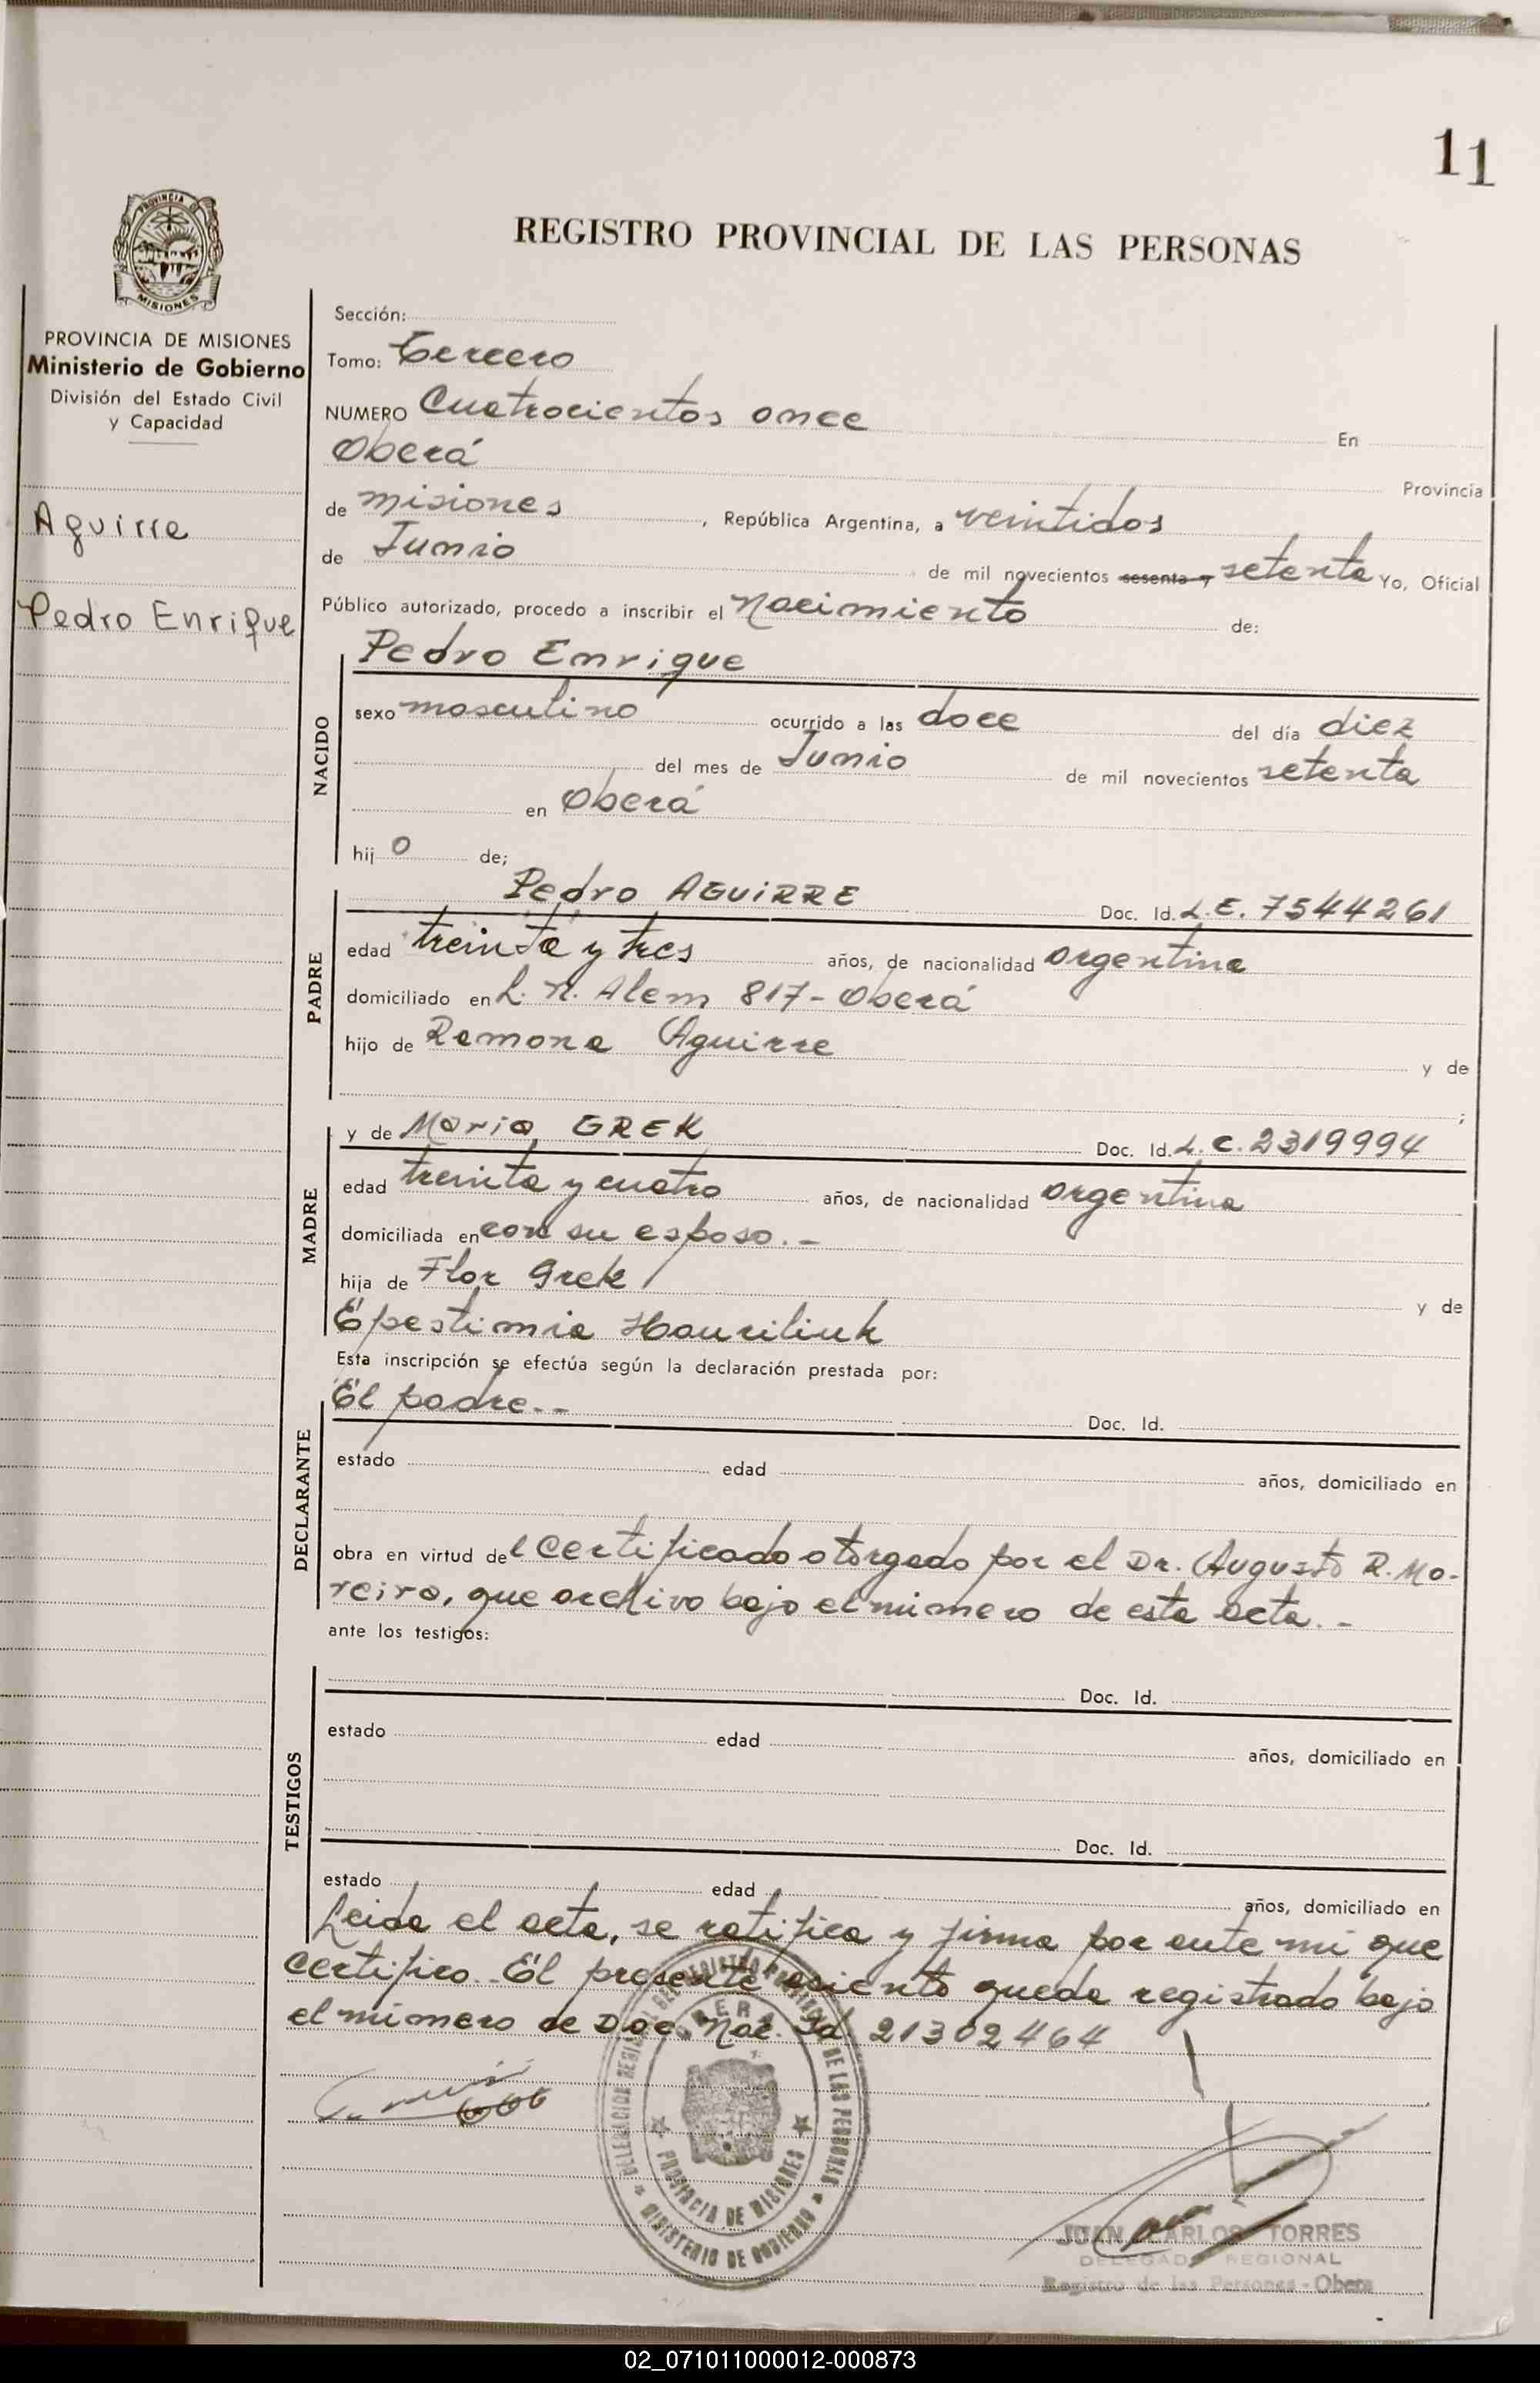 11
PROVINCIA DE
MISIONES
REGISTRO PROVINCIAL DE LAS PERSONAS
PROVINCIA DE MISIONES
Ministerio de Gobierno
División del Estado Civil
y Capacidad
Aguirre
Pedro Enrique
Sección:
Tomo: Tercero
NUMERO Cuatrocientos once En
Oberá Provincia
de misiones , República Argentina, a veintidos
de Junio de mil novecientos sesenta y setenta Yo, Oficial
Público autorizado, procedo a inscribir el Nacimiento de:
NACIDO
Pedro Enrique
sexo masculino ocurrido a las doce del día diez
del mes de Junio de mil novecientos setenta
en Oberá
hij o de;
PADRE
Pedro AGUIRRE Doc. Id. L.E. 7544261
edad treinta y tres años, de nacionalidad argentina
domiciliado en L. N. Alem 817 - Oberá
hijo de Ramona Aguirre y de
;
MADRE
y de Maria GREK Doc. Id. L.C. 2319994
edad treinta y cuatro años, de nacionalidad argentina
domiciliada en con su esposo.-
hija de Flor Grek y de
Epestimia Hauriliuk
Esta inscripción se efectúa según la declaración prestada por:
DECLARANTE
El padre.-- Doc. Id.
estado edad años, domiciliado en
obra en virtud de l certificado otorgado por el Dr. Augusto R. Mo-
reira, que archivo bajo el número de esta acta.-
ante los testigos:
TESTIGOS
Doc. Id.
estado edad años, domiciliado en
Doc. Id.
estado edad años, domiciliado en
Leida el acta, se ratifica y firma por ante mi que
certifico.- El presente asiento queda registrado bajo
el número de Doc. Nac. Id. 21302464
PROVINCIA DE MISIONES
MINISTERIO DE GOBIERNO
DE LAS PERSONAS
JUAN CARLOS TORRES
DELEGADO REGIONAL
Registro de las Personas - Obera
02_071011000012-000873